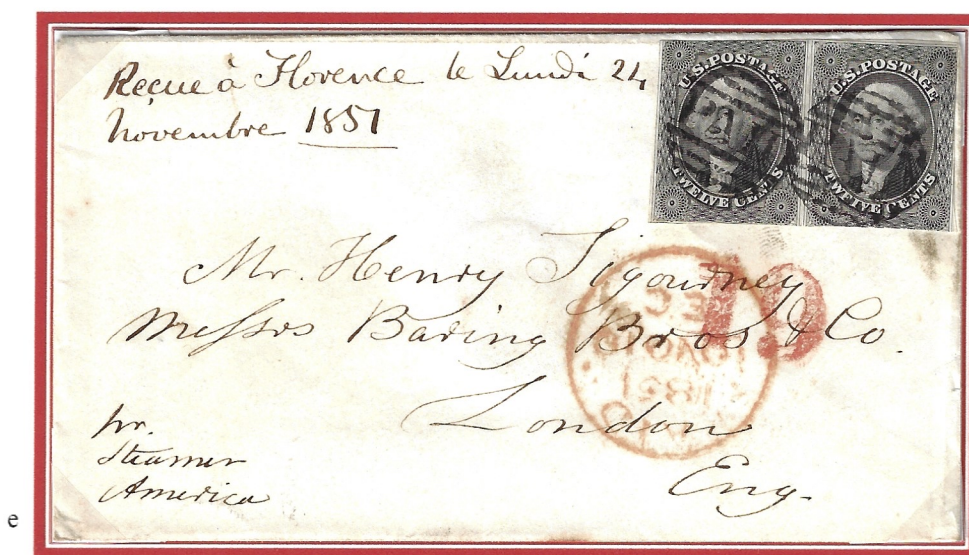 Reçue à Florence le Lundi 24
Novembre 1851
U.S. POSTAGE
TWELVE CENTS
U.S. POSTAGE
TWELVE CENTS
Mr. Henry Sigourney
19
Messrs Baring Bros & Co.
London
Eng.
pr.
Steamer
America
e